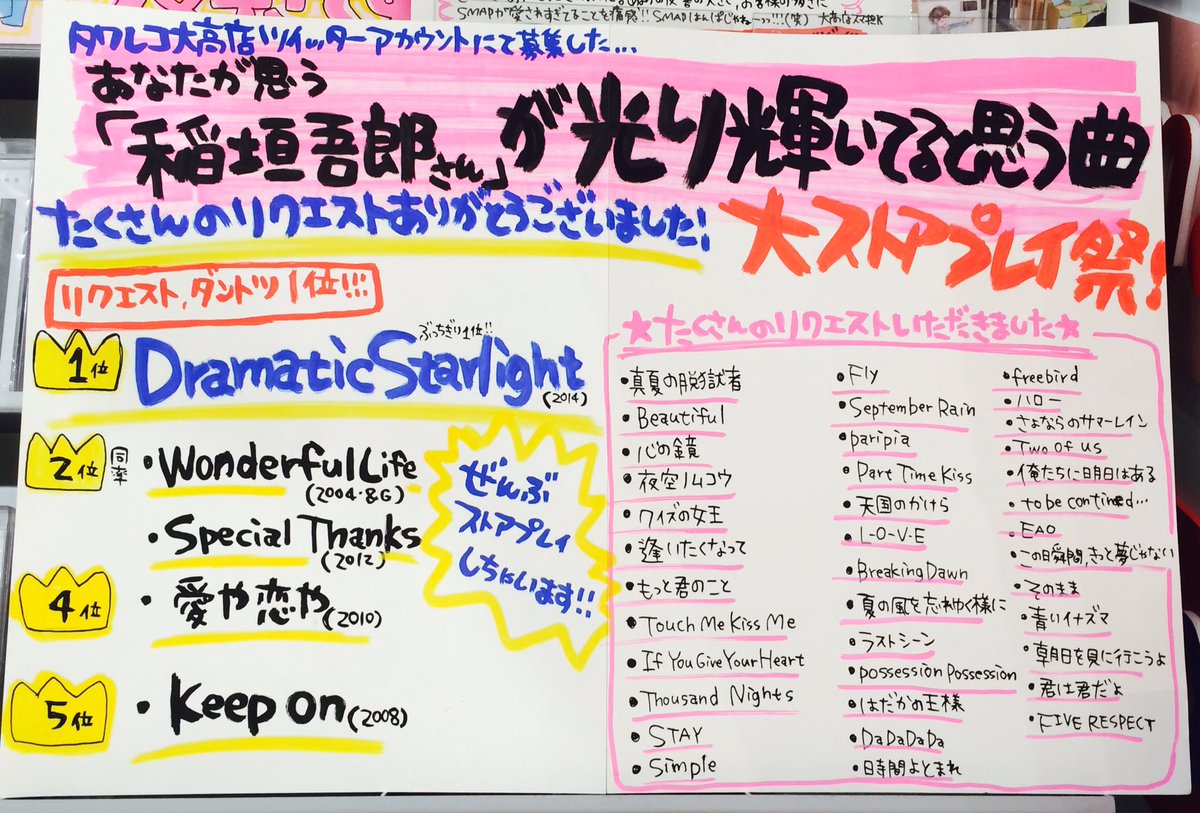 SMAPが愛されすぎてることを痛感!!SMAPはんぱじゃねーっっ!!!(笑)
タワレコ大高店ツイッターアカウントにて募集した...
あなたが思う
「稲垣吾郎さん」が光り輝いてると思う曲
たくさんのリクエストありがとうございました!
大ストアプレイ祭!
リクエスト,ダントツ1位!!!
ぶっちぎり1位!!
1位 Dramatic Starlight (2014)
2位 同率 ・Wonderful Life
(2004・&G)
・Special Thanks
(2012)
4位 ・愛や恋や(2010)
5位 ・Keep on(2008)
ぜんぶ
ストアプレイ
しちゃいます!!
☆たくさんのリクエストいただきました☆
・真夏の脱獄者
・Beautiful
・心の鏡
・夜空ノムコウ
・クイズの女王
・逢いたくなって
・もっと君のこと
・Touch Me Kiss Me
・If You Give Your Heart
・Thousand Nights
・STAY
・Simple
・Fly
・September Rain
・paripia
・Part Time Kiss
・天国のかけら
・L-O-V-E
・Breaking Dawn
・夏の風を忘れゆく様に
・ラストシーン
・possession Possession
・はだかの王様
・DaDaDaDa
・時間よとまれ
・freebird
・ハロー
・さよならのサマーレイン
・Two of us
・俺たちに明日はある
・to be contined...
・EAO
・この瞬間,きっと夢じゃない
・そのまま
・青いイナズマ
・朝日を見に行こうよ
・君は君だよ
・FIVE RESPECT